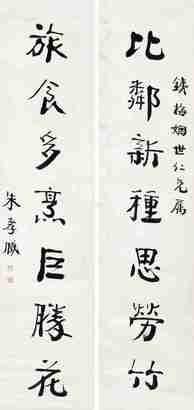 比鄰新種思勞竹
梅姻世仁兄屬
旅食多烹巨勝花
朱孝臧